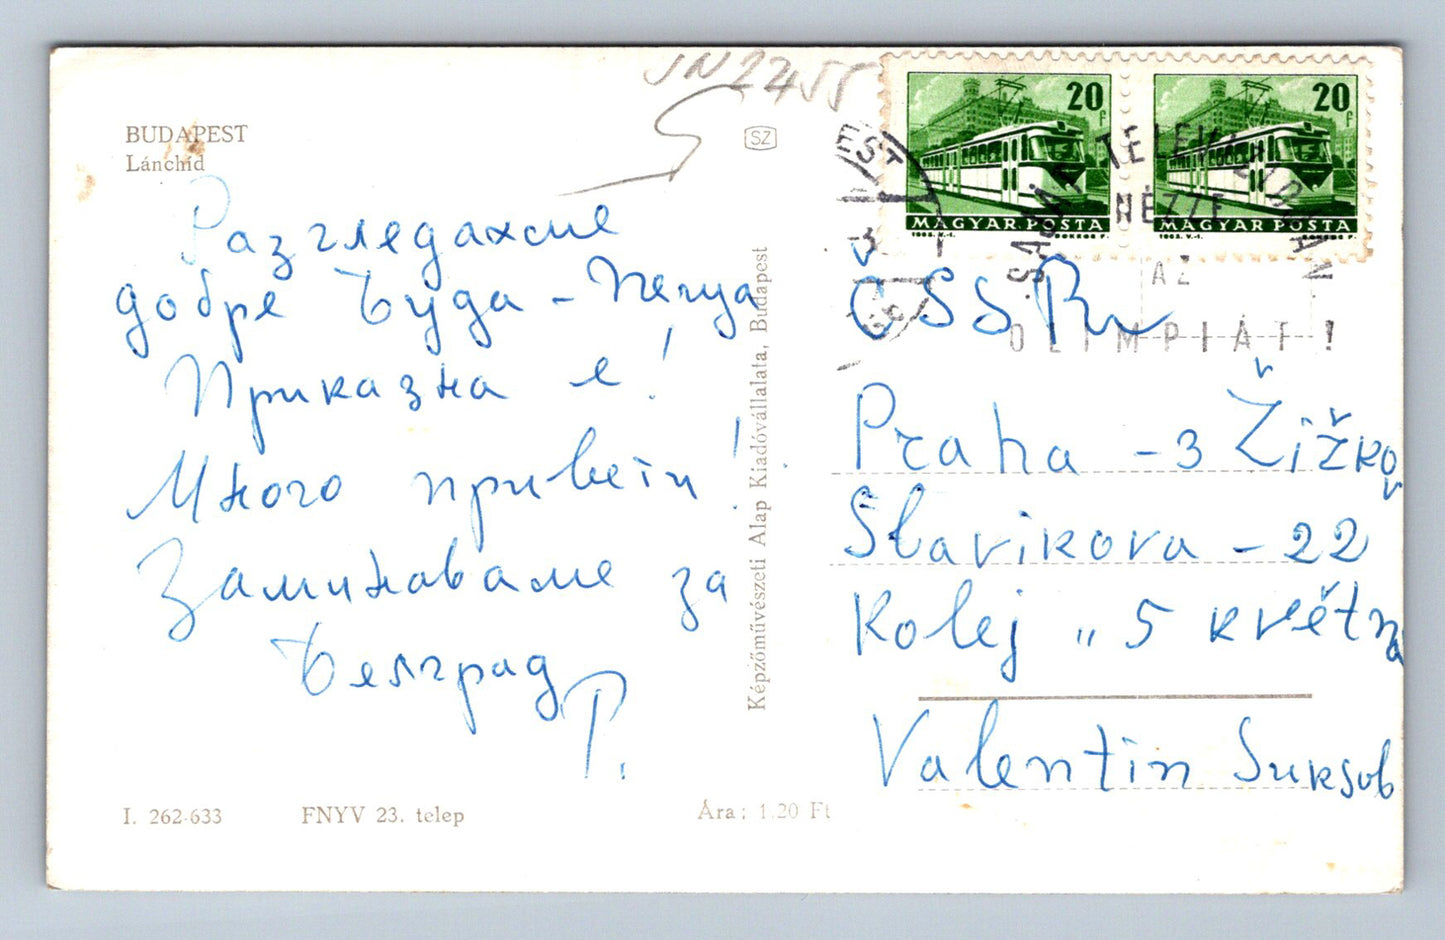 BUDAPEST
Lánchíd
Разгледахме
добре Буда - Пеща
Приказна е!
Много привети!
Заминаваме за
Белград
Р.
I. 262-633
FNYV 23. telep
Ára: 1.20 Ft
SZ
Képzőművészeti Alap Kiadóvállalata, Budapest
20 f
MAGYAR POSTA
20 f
MAGYAR POSTA
SAJÁT TELEVIZIÓJÁN
NÉZZE
AZ
OLIMPIÁT!
ČSSR
Praha - 3 Žižkov
Slavikova - 22
Kolej „5 května
Valentin